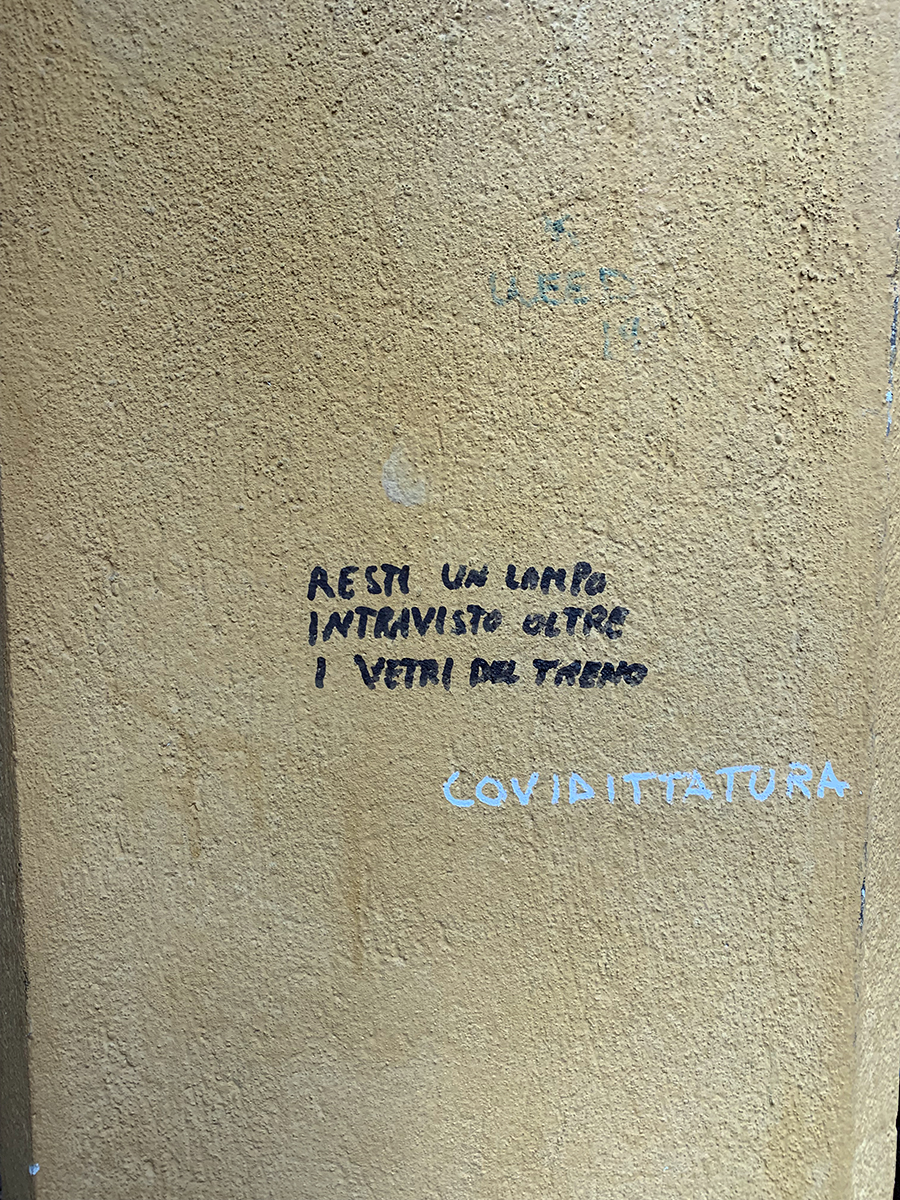 WEED
RESTI UN LAMPO
INTRAVISTO OLTRE
I VETRI DEL TRENO
COVIDITTATURA